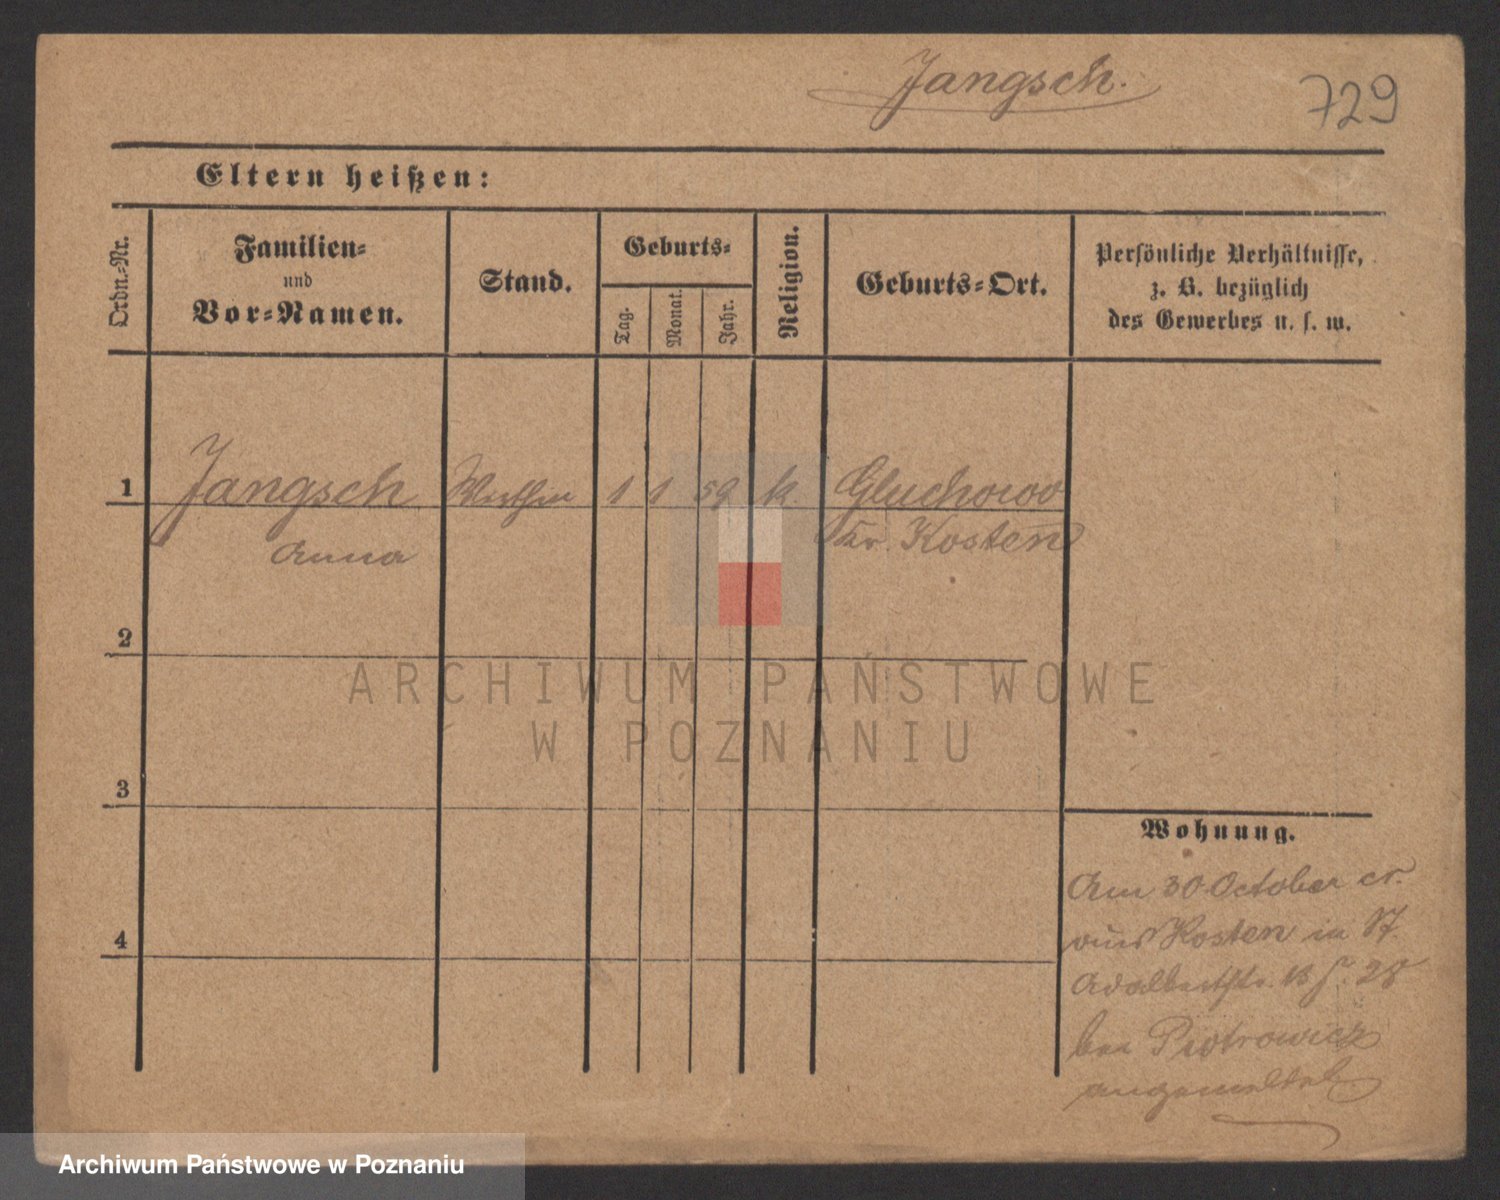 Jangsch.
729
Eltern heißen:
Ordn.-Nr.
Familien-
und
Vor-Namen.
Stand.
Geburts-
Tag.
Monat.
Jahr.
Religion.
Geburts-Ort.
Persönliche Verhältnisse,
z. B. bezüglich
des Gewerbes u. s. w.
1 Jangsch Wirthin 1 1 59 k. Gluchowo
Anna Kr. Kosten
2
ARCHIWUM PAŃSTWOWE
W POZNANIU
3
Wohnung.
Am 30 October cr.
aus Kosten in St.
4
Adalbertstr. 28
bei Piotrowicz
angemeldet
Archiwum Państwowe w Poznaniu